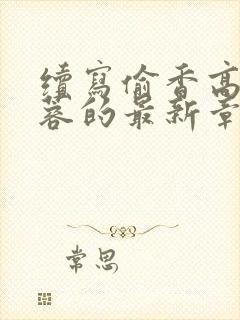 續寫偷香高
蓉的最新章
常思